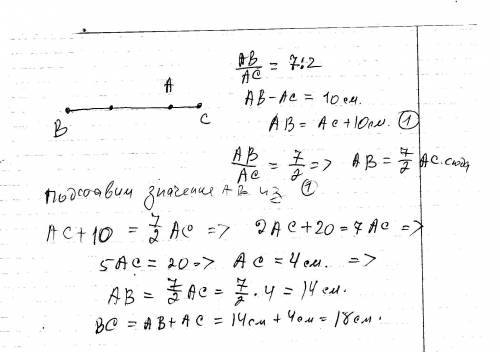 AB/AC = 7:2
AB-AC = 10 см.
A
AB = AC+10см. ①
B
C
AB/AC = 7/2 => AB = 7/2 AC. сюда
подставим значение AB из ①
AC+10 = 7/2 AC => 2AC+20=7AC =>
5AC=20=> AC=4см. =>
AB = 7/2 AC = 7/2 · 4 = 14 см.
BC = AB+AC = 14см + 4см = 18см.